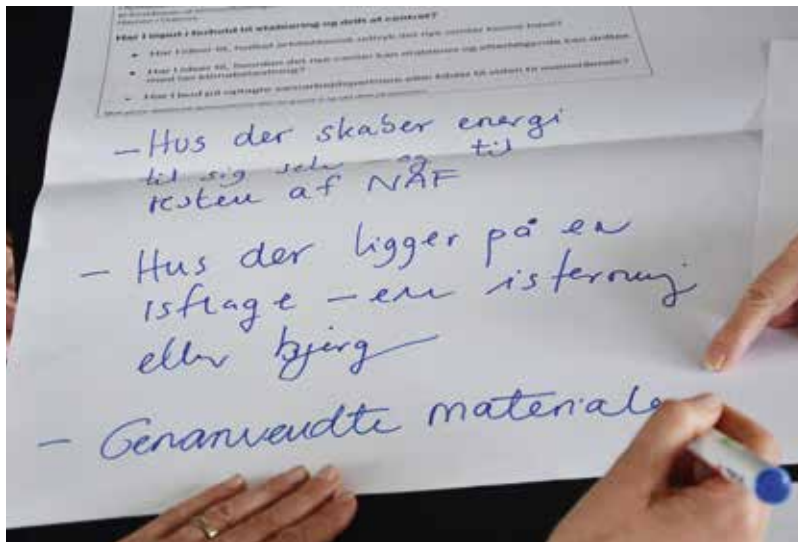 Har I input i forhold til etablering og drift af centret?
• Har I ideer til, hvilket arkitektonisk udtryk det nye center kunne have?
• Har I ideer til, hvordan det nye center kan etableres og efterfølgende kan driftes
med lav klimabelastning?
• Har I bud på oplagte samarbejdspartnere eller kilder til viden
– Hus der skaber energi
til sig selv og til
resten af NAF
– Hus der ligger på en
isflage – en isterning
eller bjerg
– Genanvendte materiale